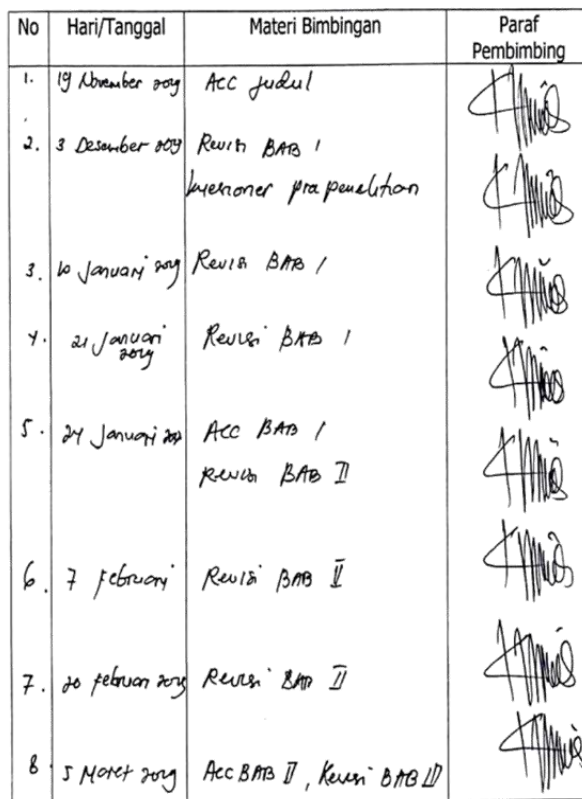 No Hari/Tanggal Materi Bimbingan Paraf
Pembimbing
1. 19 November 2019 Acc Judul
2. 3 Desember 2019 Revisi BAB I
kuesioner pra penelitian
3. 10 Januari 2019 Revisi BAB I
4. 21 Januari Revisi BAB I
2019
5. 24 Januari Acc BAB I
Revisi BAB II
6. 7 Februari Revisi BAB II
7. 20 Februari 2019 Revisi BAB II
8 5 Maret 2019 Acc BAB II, Revisi BAB III